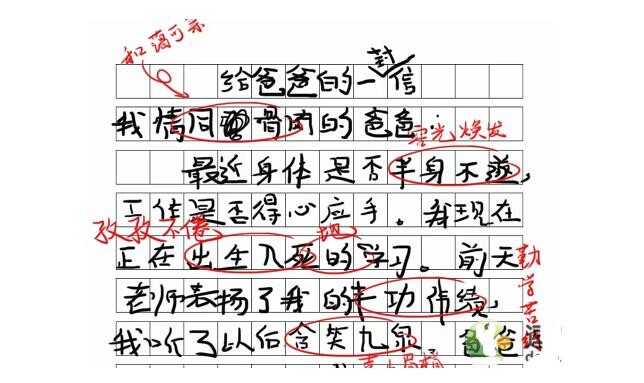 和蔼可亲
给爸爸的一封信
我情同骨肉的爸爸:
容光焕发
最近身体是否半身不遂,
工作是否得心应手。我现在
孜孜不倦 地
正在出生入死的学习。前天
勤学苦练
老师表扬了我的丰功伟绩,
我听了以后含笑九泉。爸爸
喜上眉梢